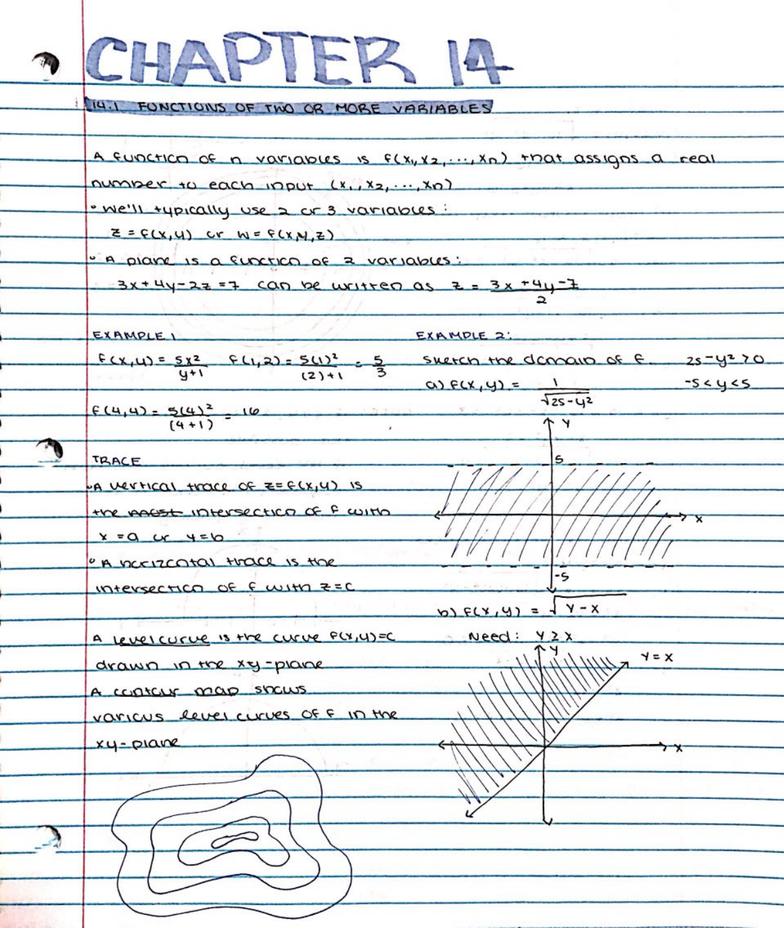 CHAPTER 14
14.1 FUNCTIONS OF TWO OR MORE VARIABLES
A function of n variables is f(x₁, x₂, ..., xₙ) that assigns a real
number to each input (x₁, x₂, ..., xₙ)
• We'll typically use 2 or 3 variables:
z = f(x,y) or w = f(x,y,z)
• A plane is a function of 2 variables:
3x + 4y - 2z = 7 can be written as z = (3x + 4y - 7)/2
EXAMPLE 1
f(x,y) = 5x²/(y+1) f(1,2) = 5(1)²/((2)+1) = 5/3
f(4,4) = 5(4)²/(4+1) = 16
EXAMPLE 2:
Sketch the domain of f. 25-y² > 0
a) f(x,y) = 1/√(25-y²) -5 < y < 5
y
5
x
-5
TRACE
• A vertical trace of z = f(x,y) is
the intersection of f with
x = a or y = b
• A horizontal trace is the
intersection of f with z = c
A level curve is the curve f(x,y) = c
drawn in the xy-plane
A contour map shows
various level curves of f in the
xy-plane
b) f(x,y) = √(y-x)
Need: y ≥ x
y
y = x
x